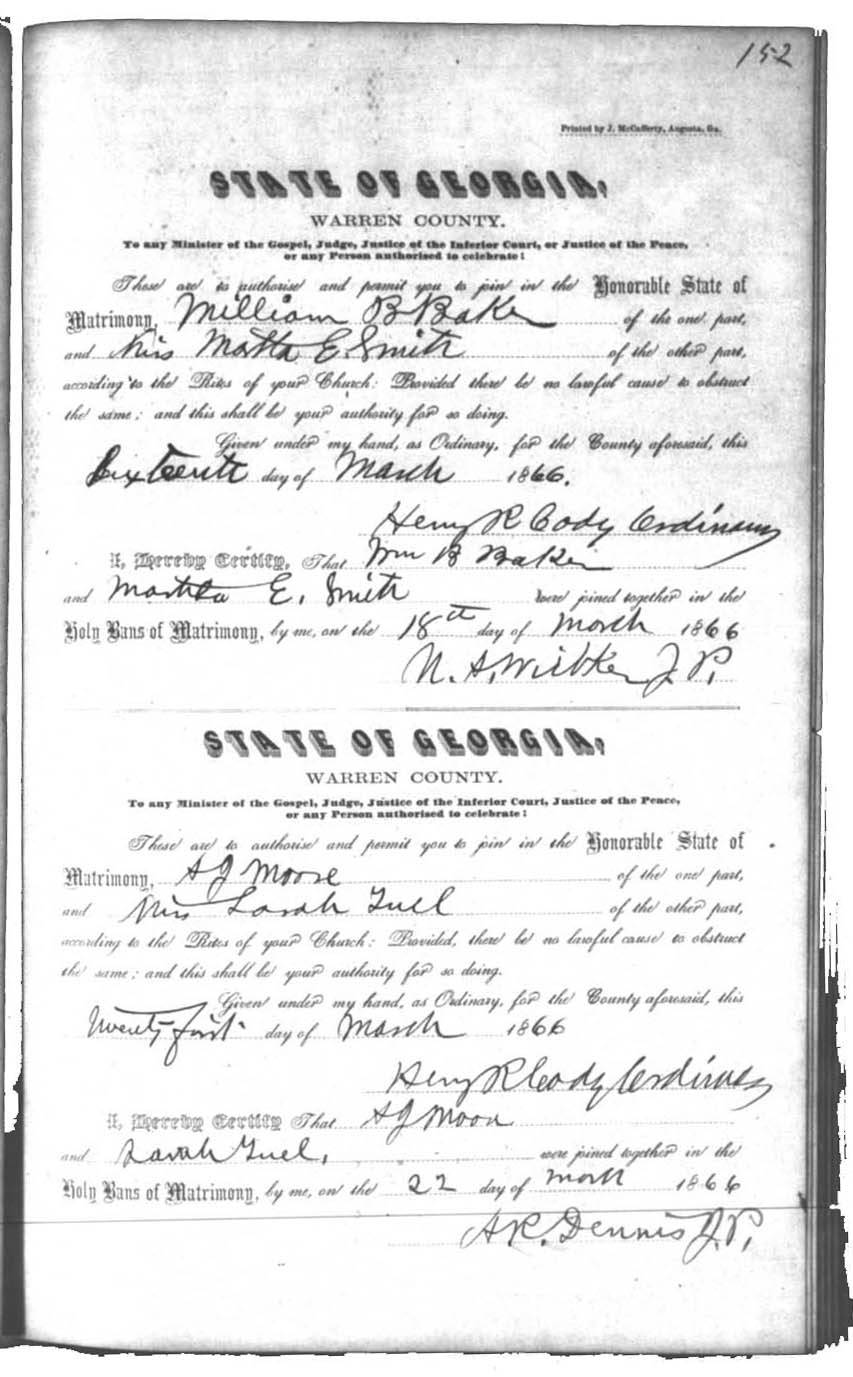 152
Printed by J. McCafferty, Augusta, Ga.
STATE OF GEORGIA,
WARREN COUNTY.
To any Minister of the Gospel, Judge, Justice of the Inferior Court, or Justice of the Peace,
or any Person authorised to celebrate:
These are to authorise and permit you to join in the Honorable State of
Matrimony, William B Baker of the one part,
and Miss Martha E. Smith of the other part,
according to the Rites of your Church: Provided there be no lawful cause to obstruct
the same; and this shall be your authority for so doing.
Given under my hand, as Ordinary, for the County aforesaid, this
Sixteenth day of March 1866.
Henry R Cody Ordinary
I, Hereby Certify, That Wm B Baker
and Martha E. Smith were joined together in the
Holy Bans of Matrimony, by me, on the 18th day of March 1866
N. A. J. P.
STATE OF GEORGIA,
WARREN COUNTY.
To any Minister of the Gospel, Judge, Justice of the Inferior Court, Justice of the Peace,
or any Person authorised to celebrate:
These are to authorise and permit you to join in the Honorable State of
Matrimony, A J Moore of the one part,
and Miss Sarah Tuel of the other part,
according to the Rites of your Church: Provided, there be no lawful cause to obstruct
the same; and this shall be your authority for so doing.
Given under my hand, as Ordinary, for the County aforesaid, this
Twenty first day of March 1866
Henry R Cody Ordinary
I, Hereby Certify That A J Moore
and Sarah Tuel, were joined together in the
Holy Bans of Matrimony, by me, on the 22 day of March 1866
A R. Dennis J. P.